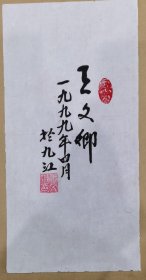 王文卿
一九九九年四月
於九江